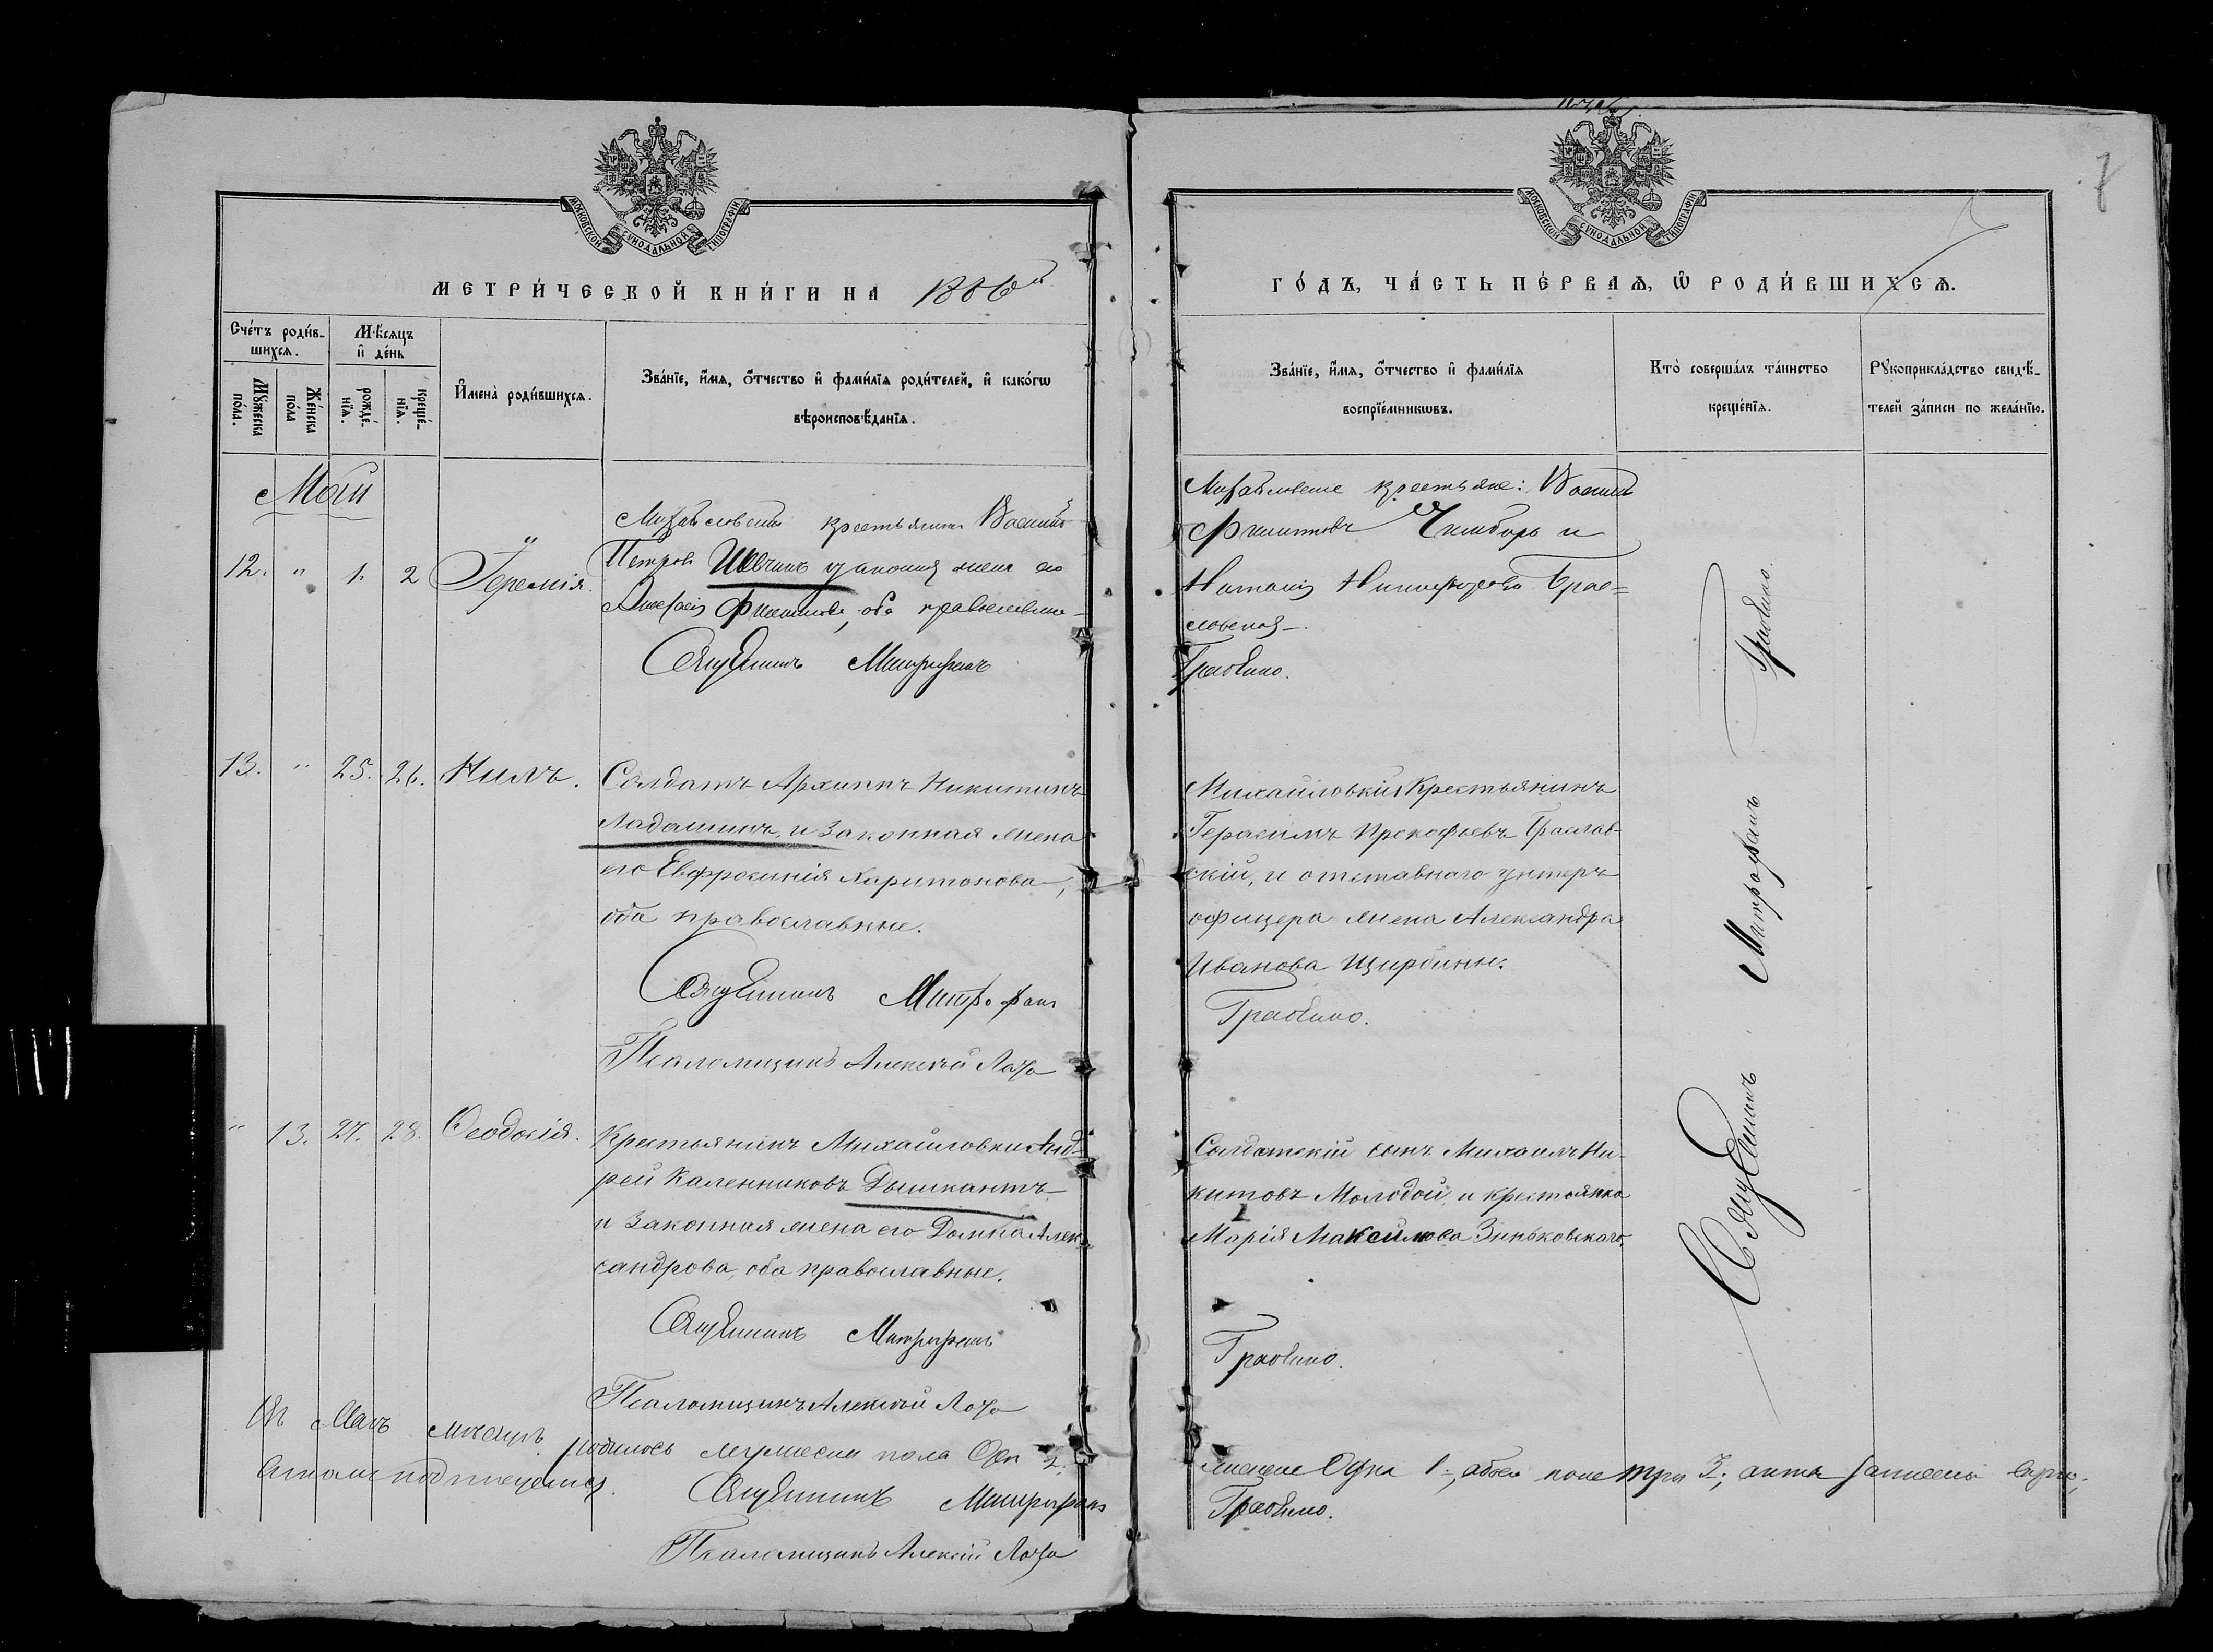 МОСКОВСКОЙ СУНОДАЛЬНОЙ ТИПОГРАФІИ
МЕТРИ́ЧЕСКОЙ КНИ́ГИ НА 1886й
Сче́тъ роди́в-
шихсѧ.
Мѣ́сяцъ
и҆ де́нь
Мꙋ́жеска
по́ла.
Же́нска
по́ла
рожде́-
нїѧ.
креще́-
нїѧ.
И҆мена̀ роди́вшихсѧ.
Зва́нїе, и҆́мѧ, ѻ҆́тчество и҆ фами́лїѧ роди́телей, и҆ како́гѡ
вѣроисповѣ́данїѧ.
Май
12. " 1. 2 Іеремія.
Михайловскій крестьянинъ Василій
Петровъ Шевчикъ законная жена его
Филиппова, оба православные
Священникъ Митрофанъ
13. " 25. 26. Нилъ.
Солдатъ Архиппъ Никитинъ
Ладашинъ, и законная жена
его Евфросинія Харитонова,
оба православные.
Священникъ Митрофанъ
Псаломщикъ Алексѣй
" 13. 27. 28. Ѳеодосія.
Крестьянинъ Михайловки Анд-
рей Каленниковъ Дышкантъ
и законная жена его Домна Алек
сандрова, оба православные.
Священникъ Митрофанъ
Псаломщикъ Алексѣй
Въ Маѣ мѣсяцѣ родилось мужеска пола 2,
подписуемся.
Священникъ Митрофанъ
Псаломщикъ Алексѣй
7
МОСКОВСКОЙ СУНОДАЛЬНОЙ ТИПОГРАФІИ
ГО́ДЪ, ЧА́СТЬ ПЕ́РВАѦ, Ѡ҆ РОДИ́ВШИХСѦ.
Зва́нїе, и҆́мѧ, ѻ҆́тчество и҆ фами́лїѧ
воспрїе́мникѡвъ.
Кто̀ соверша́лъ та́инство
креще́нїѧ.
Рꙋкоприкла́дство свидѣ́-
телей за́писи по жела́нїю.
Михайловскіе крестьяне: Василій
Филипповъ и
Наталія Никифорова Брас-
лавская.
Грабенко.
Михайловкій Крестьянинъ
Герасимъ Прокофьевъ Браслав-
скій, и отставнаго унтеръ
офицера жена Александра
Иванова Щирбины.
Грабенко.
Солдатскій сынъ Михаилъ Ни-
китовъ Молодой, и крестьянка
Марія Максимова Зиньковскаго.
Грабенко.
Священникъ Митрофанъ Грабенко.
женска Одна 1, обоего пола три 3;
Грабенко.